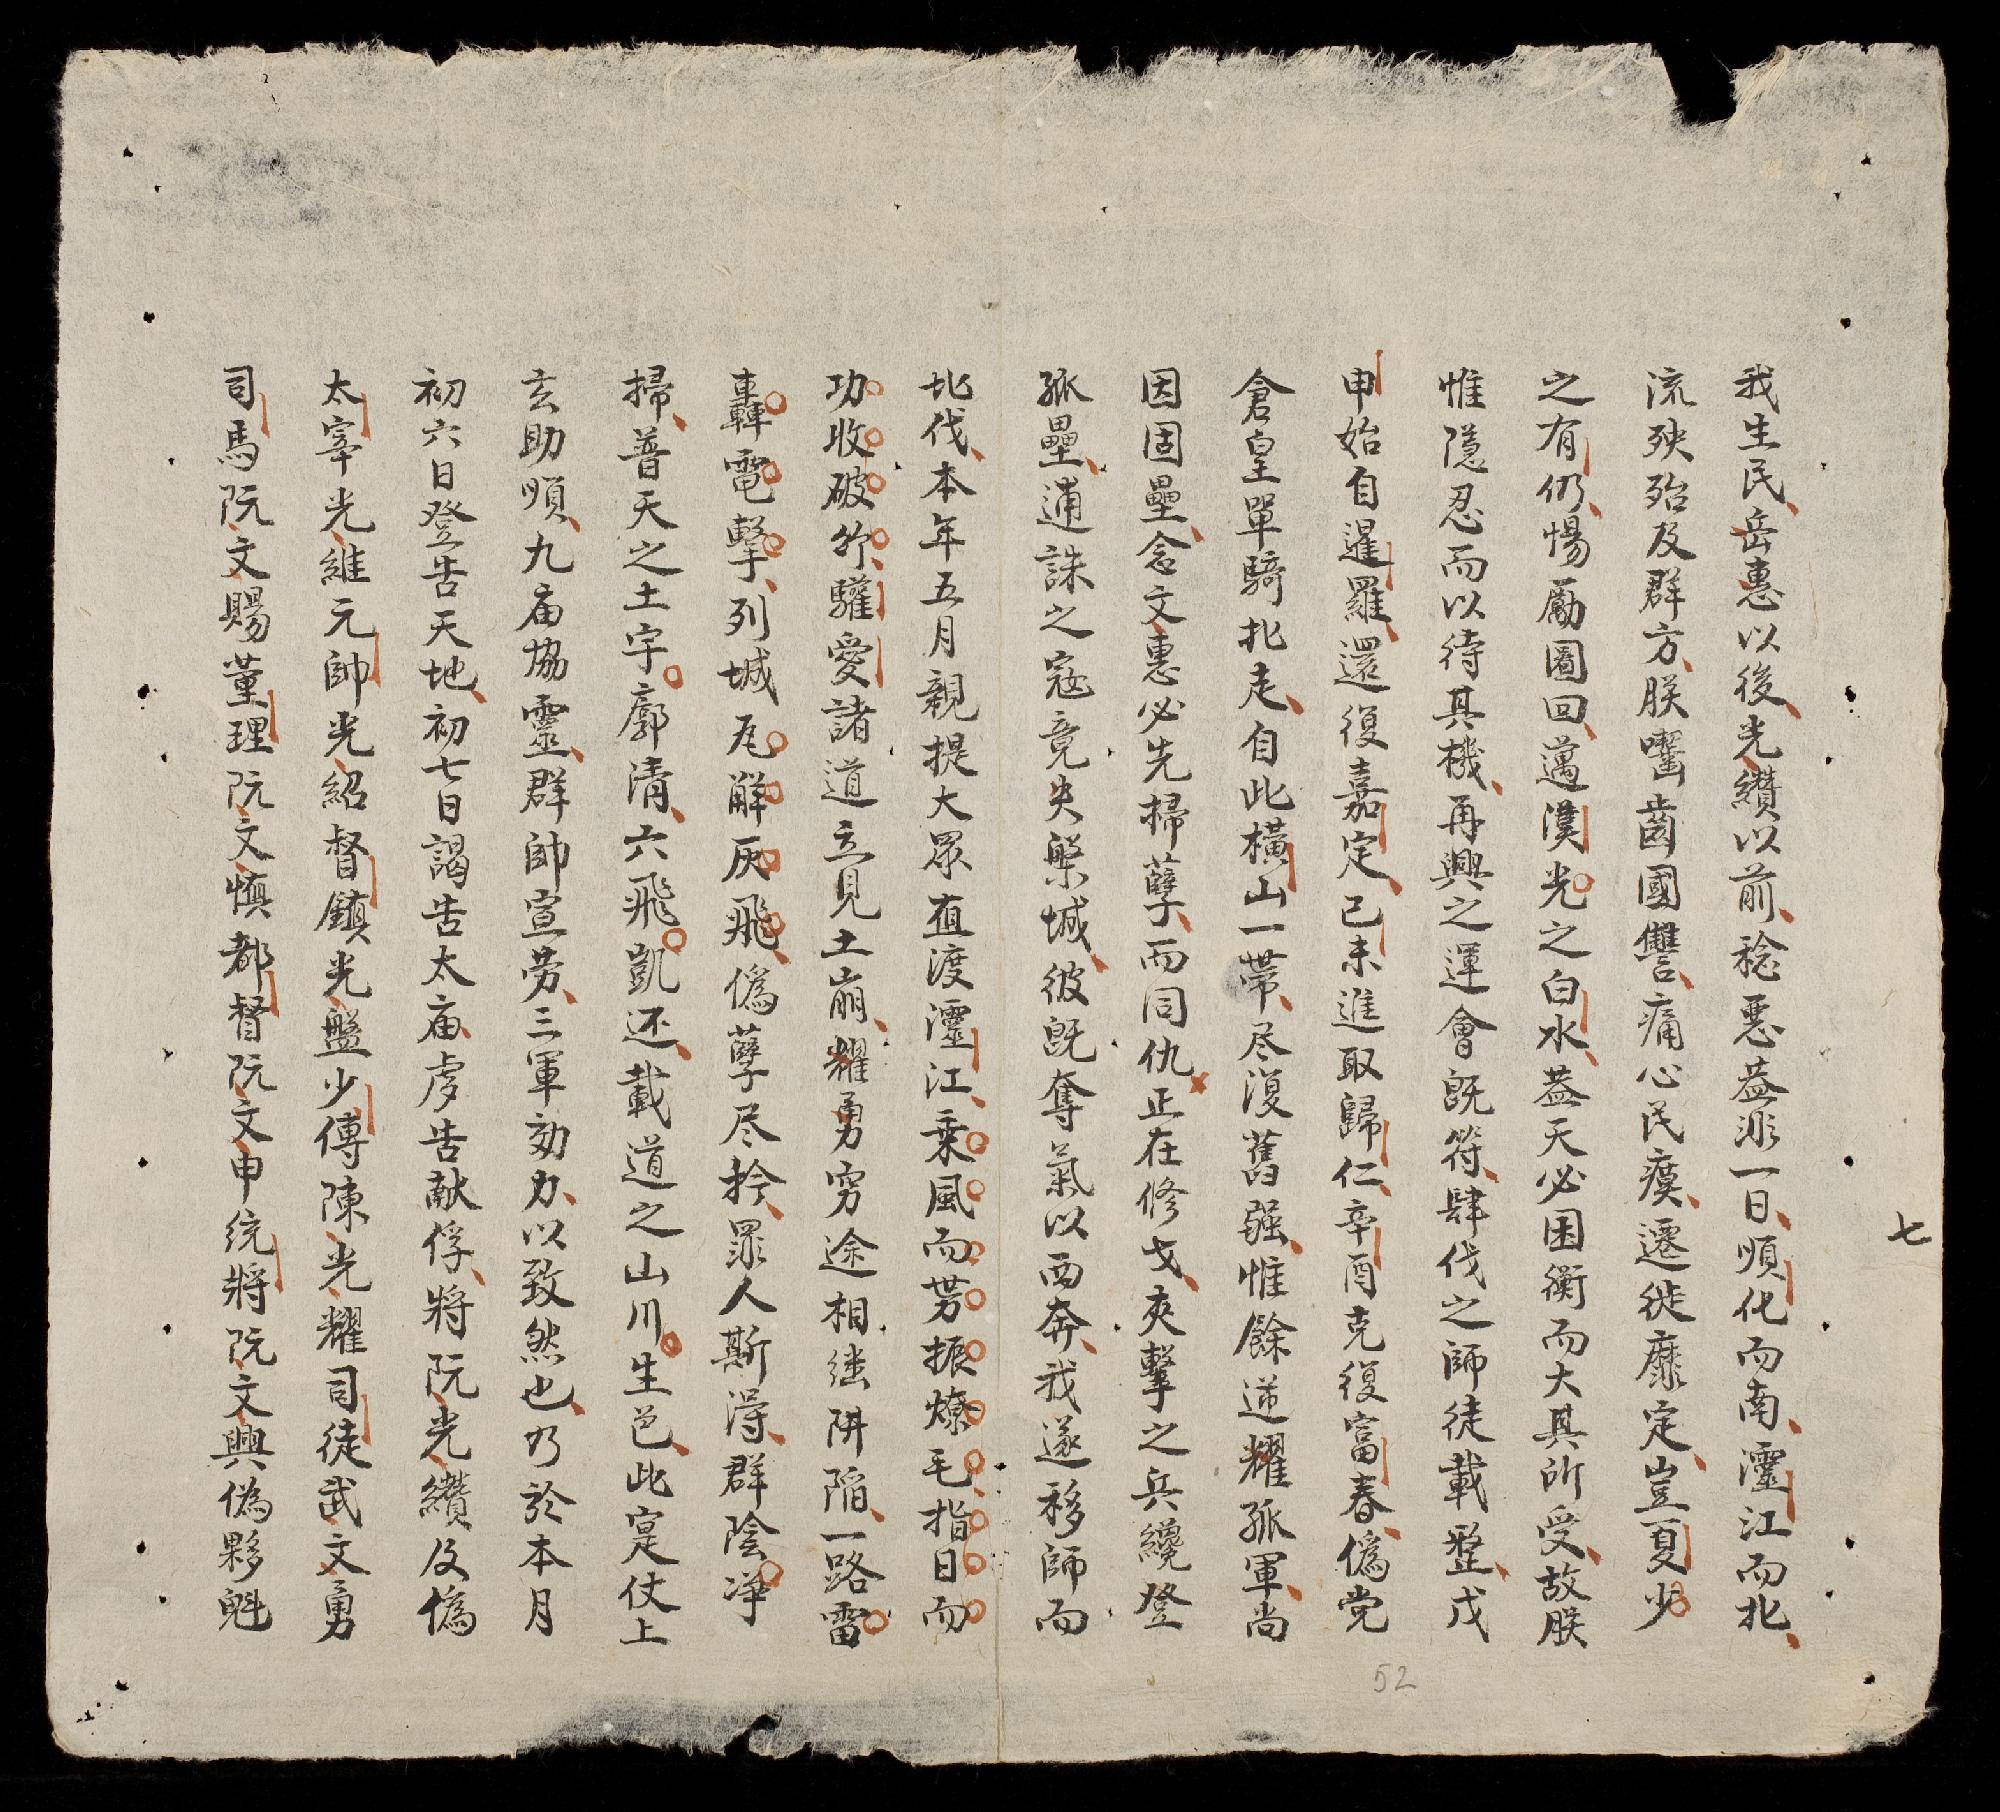 七
我生民岳惠以後光纘以前稔惡盖非一日順化而南𤅷江而北
流殃殆及群方朕嚙齒國讐痛心民瘼遷徙靡定豈夏少
之有仍惕勵圖回邁漢光之白水盖天必困衡而大其所受故朕
惟隱忍而以待其機再興之運會既符肆伐之師徒載整戊
申始自暹羅還復嘉定己未進取歸仁辛酉克復富春偽党
倉皇單騎北走自此橫山一帶尽復舊疆惟餘逆耀孤軍尚
因固壘念文惠必先掃孽而同仇正在修戈夾擊之兵纔登
孤壘逋誅之寇竟失槃城彼既奪氣以西奔我遂移師而
北伐本年五月親提大眾直渡𤅷江乘風而勢振燎毛指日而
功收破竹驩愛諸道立見土崩耀勇窮途相継阱陷一路雷
轟電擊列城瓦解灰飛偽孽尽擒罪人斯得群陰凈
掃普天之土宇廓清六飛凱还載道之山川生色此寔仗上
玄助順九庙協靈群帥宣劳三軍効力以致然也乃於本月
初六日登告天地初七日謁告太庙虔告献俘將阮光纘及偽
太宰光維元帥光紹督鎮光盤少傅陳光耀司徒武文勇
司馬阮文賜董理阮文慎都督阮文申統將阮文興偽夥魁
52